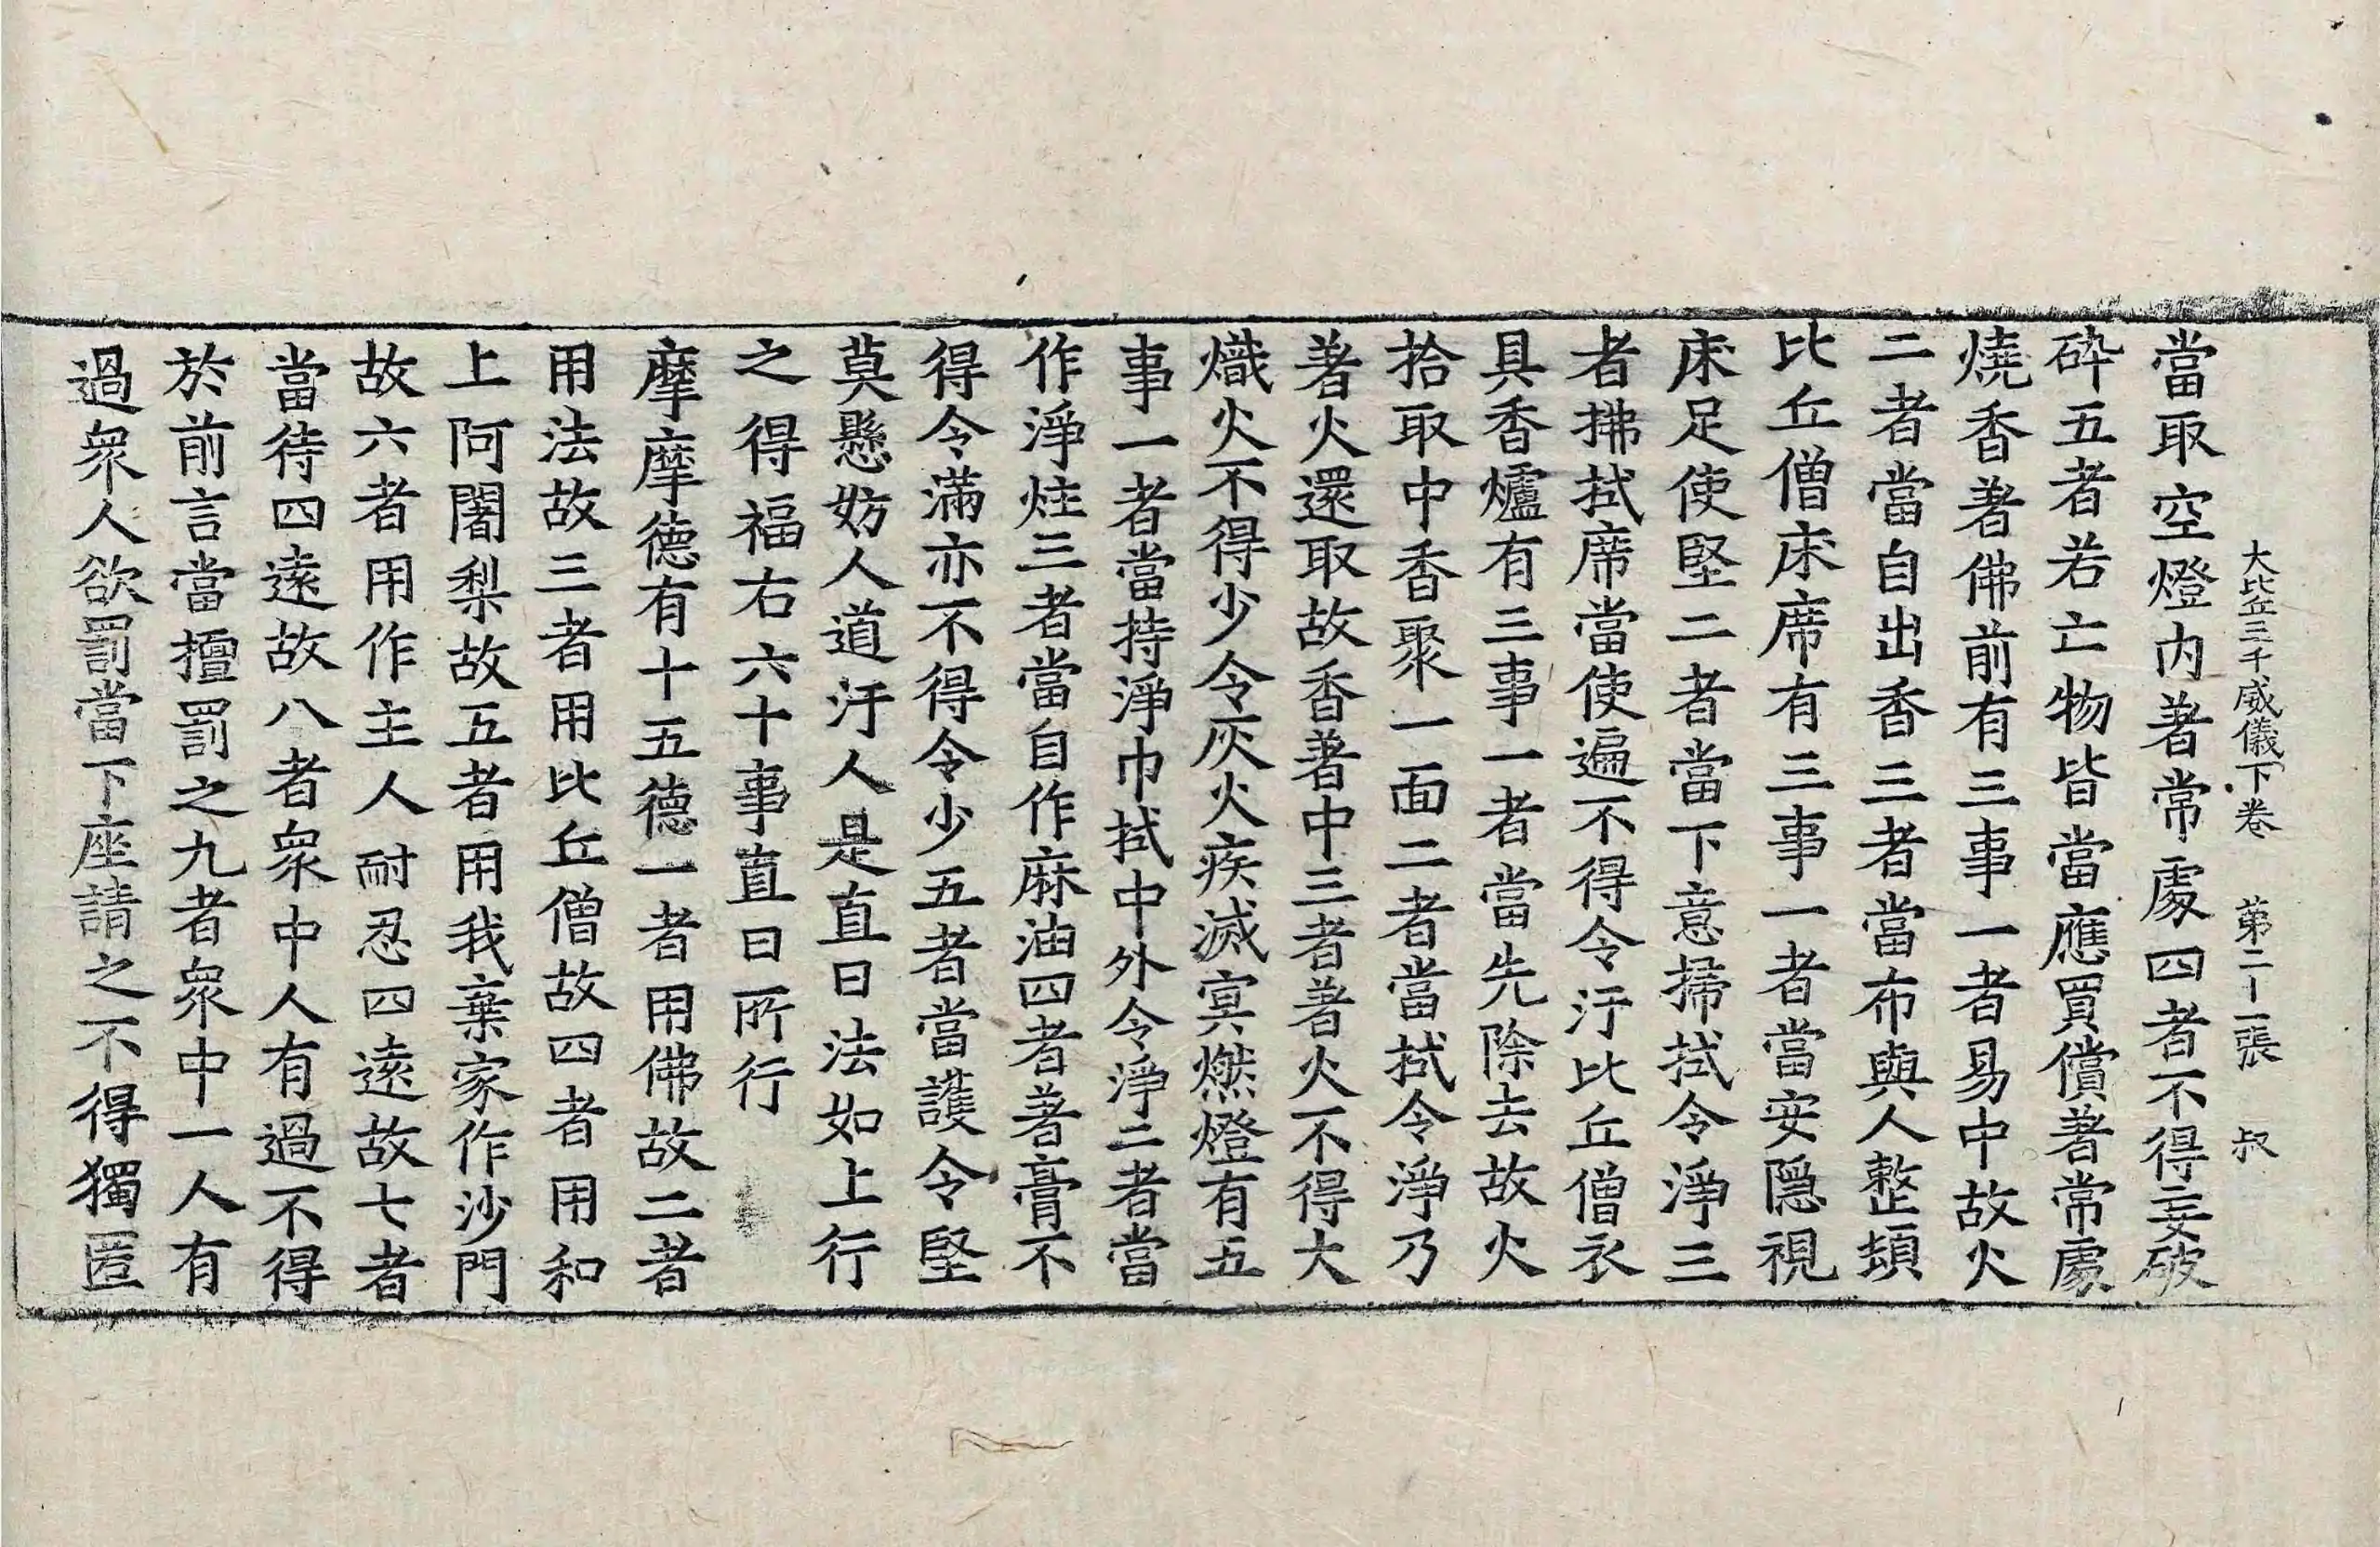 大比丘三千威儀下卷　第二十一張　叔
當取空燈内著常處四者不得妄破
碎五者若亡物皆當應買償著常處
燒香著佛前有三事一者易中故火
二者當自出香三者當布與人整頓
比丘僧床席有三事一者當安隱視
床足使堅二者當下意掃拭令淨三
者拂拭席當使遍不得令汙比丘僧衣
具香爐有三事一者當先除去故火
拾取中香聚一面二者當拭令淨乃
著火還取故香著中三者著火不得大
熾火不得少令灰火疾滅冥燃燈有五
事一者當持淨巾拭中外令淨二者當
作淨炷三者當自作麻油四者著膏不
得令滿亦不得令少五者當護令堅
莫懸妨人道汙人是直日法如上行
之得福右六十事直日所行
摩摩德有十五德一者用佛故二者
用法故三者用比丘僧故四者用和
上阿闍梨故五者用我棄家作沙門
故六者用作主人耐忍四遠故七者
當待四遠故八者衆中人有過不得
於前言當擅罰之九者衆中一人有
過衆人欲罰當下座請之不得獨匿